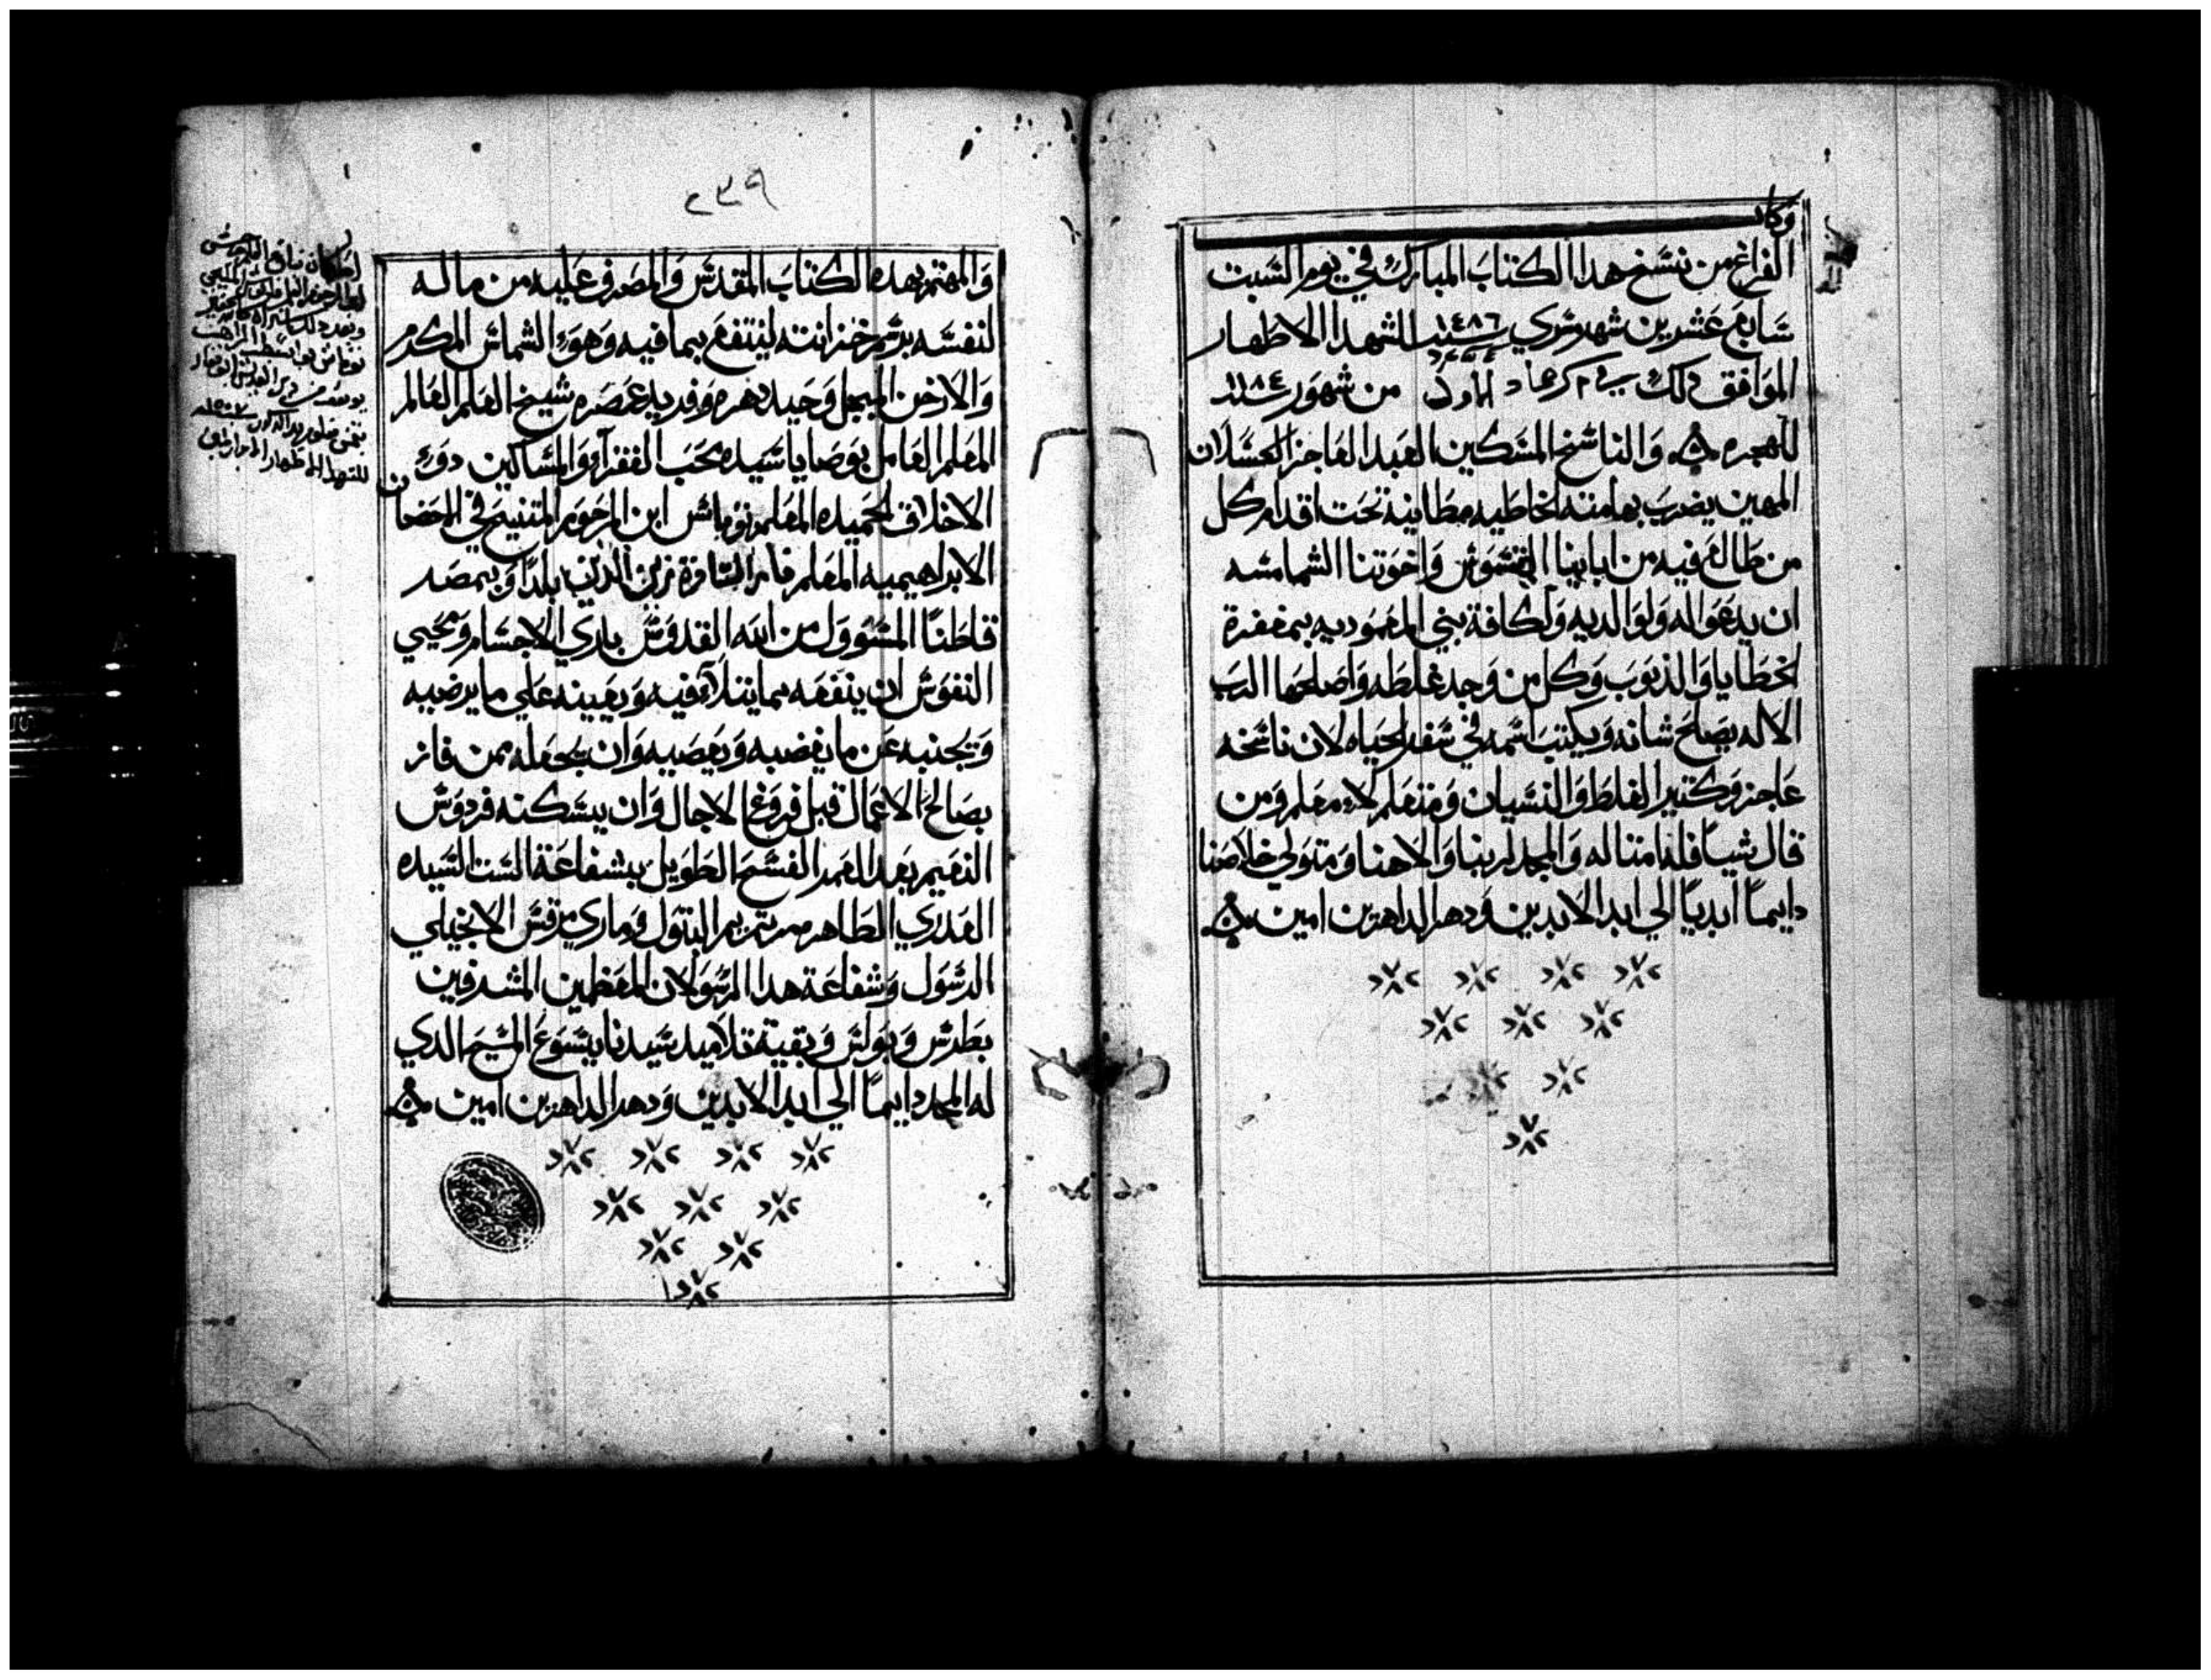 وكان
الفراغ من نسخ هدا الكتاب المبارك في يوم السبت
سابع عشرين شهر مسري سنة ١٤٨٦ للشهدا الاطهار
الموافق دلك من شهور ١١٨٤
للهجره والناسخ المسكين العبد العاجز الكسلان
المهين يضرب بهامته الخاطيه مطانيه تحت اقدام كل
من طالع فيه من اباينا القسوس واخوتنا الشمامسه
ان يدعو اله ولوالديه ولكافة بني المعموديه بمغفرة
الخطايا والدنوب وكل من وجد غلطه واصلحها الرب
الاله يصلح شانه ويكتب اسمه في سفر الحياه لان ناسخه
عاجز وكتير الغلط والنسيان ومتعلم لا معلم ومن
قال شيا فله امتاله والمجد لربنا والاهنا ومتولي خلاصنا
دايماً ابدياً الي ابد الابدين ودهر الداهرين امين
٢٣٩
والمهتم بهده الكتاب المقدس والمصرف عليه من ماله
لنفسه برسم خزانته لينتفع بما فيه وهو الشماش المكرم
والارخن المبجل وحيد دهره وفريد عصره شيخ العلم العالم
المعلم العامل بوصايا سيده محب الففرآء والمساكين دو
الاخلاق الحميده المعلم نوماس ابن المرحوم المتنيح في الاحضان
الابراهيميه المعلم بلداً وبمصر
قاطناً المسوول من الله القدوس باري الاجسام ومحيي
النفوس ان ينفعه بما يتلآء فيه ويعينه علي ما يرضيه
ويجنبه عن ما يغضبه ويعصيه وان يجعله ممن فاز
بصالح الاعمال قبل فروغ الاجال وان يسكنه فردوس
النعيم بعد العمر الفسح الطويل بشفاعة الست السيده
العدري الطاهره مرتمريم البتول وماري مرقس الانجيلي
الرسول وشفاعة هدا الرسولان المعظمين المشرفين
بطرس وبولس وبقية تلاميد سيدنا يسوع المسيح الدي
له المجد دايماً الي ابد الابدين ودهر الداهرين امين